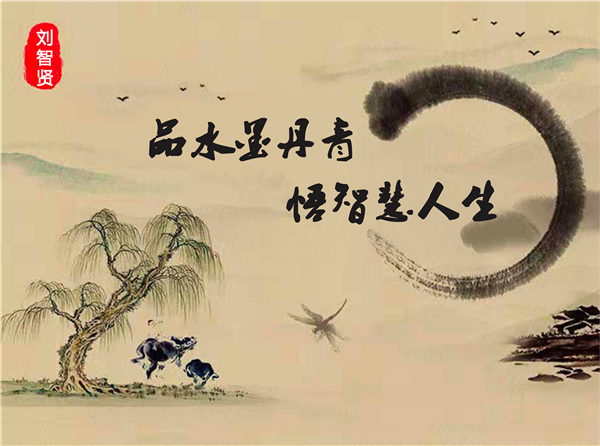 刘智贤
品水墨丹青
悟智慧人生